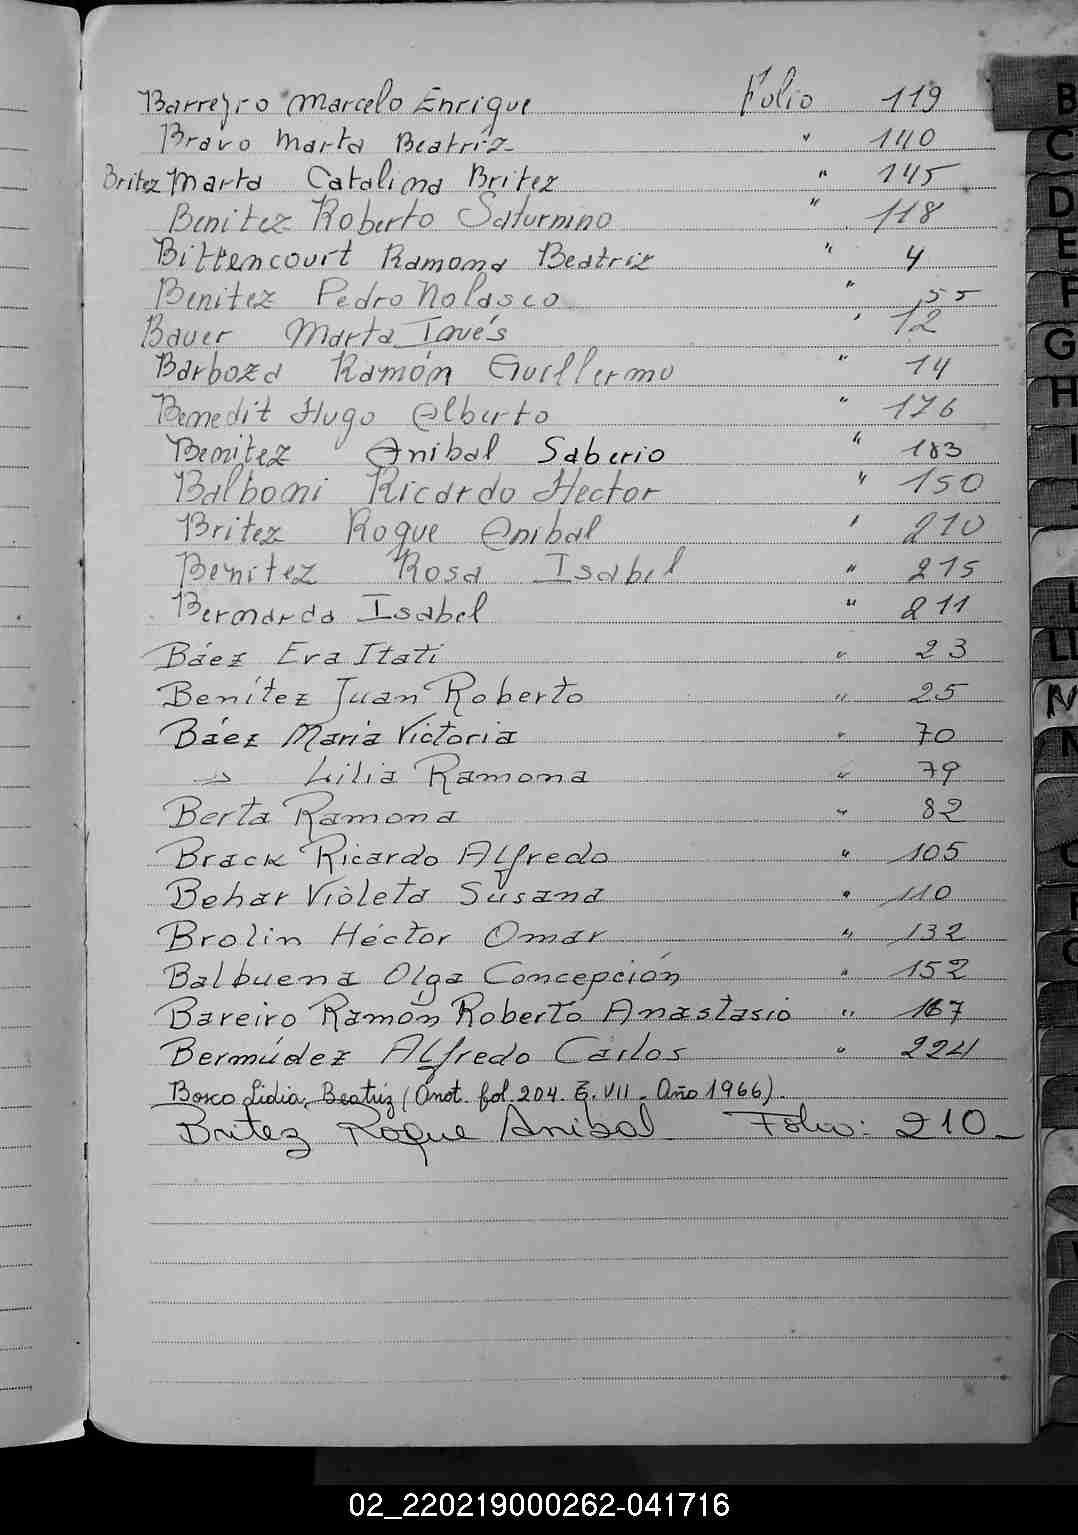 Barreyro Marcelo Enrique Folio 119
Bravo Marta Beatriz " 140
Britez Marta Catalina Britez " 145
Benitez Roberto Saturnino " 118
Bittencourt Ramona Beatriz " 4
Benitez Pedro Nolasco " 55
Bauer Marta Inés " 12
Barboza Ramón Guillermo " 14
Benedit Hugo Alberto " 176
Benitez Anibal Saberio " 183
Balboni Ricardo Hector " 150
Britez Roque Anibal " 210
Benitez Rosa Isabel " 215
Bernarda Isabel " 211
Báez Eva Itatí " 23
Benítez Juan Roberto " 25
Báez María Victoria " 70
" Lilia Ramona " 79
Berta Ramona " 82
Brack Ricardo Alfredo " 105
Behar Violeta Susana " 110
Brolin Héctor Omar " 132
Balbuena Olga Concepción " 152
Bareiro Ramón Roberto Anastasio " 167
Bermúdez Alfredo Carlos " 224
Bosco Lidia Beatriz (Anot. fol. 204. E. VII - Año 1966).
Britez Roque Anibal Folio: 210_
B
C
D
E
F
G
H
I
L
Ll
M
N
02_220219000262-041716